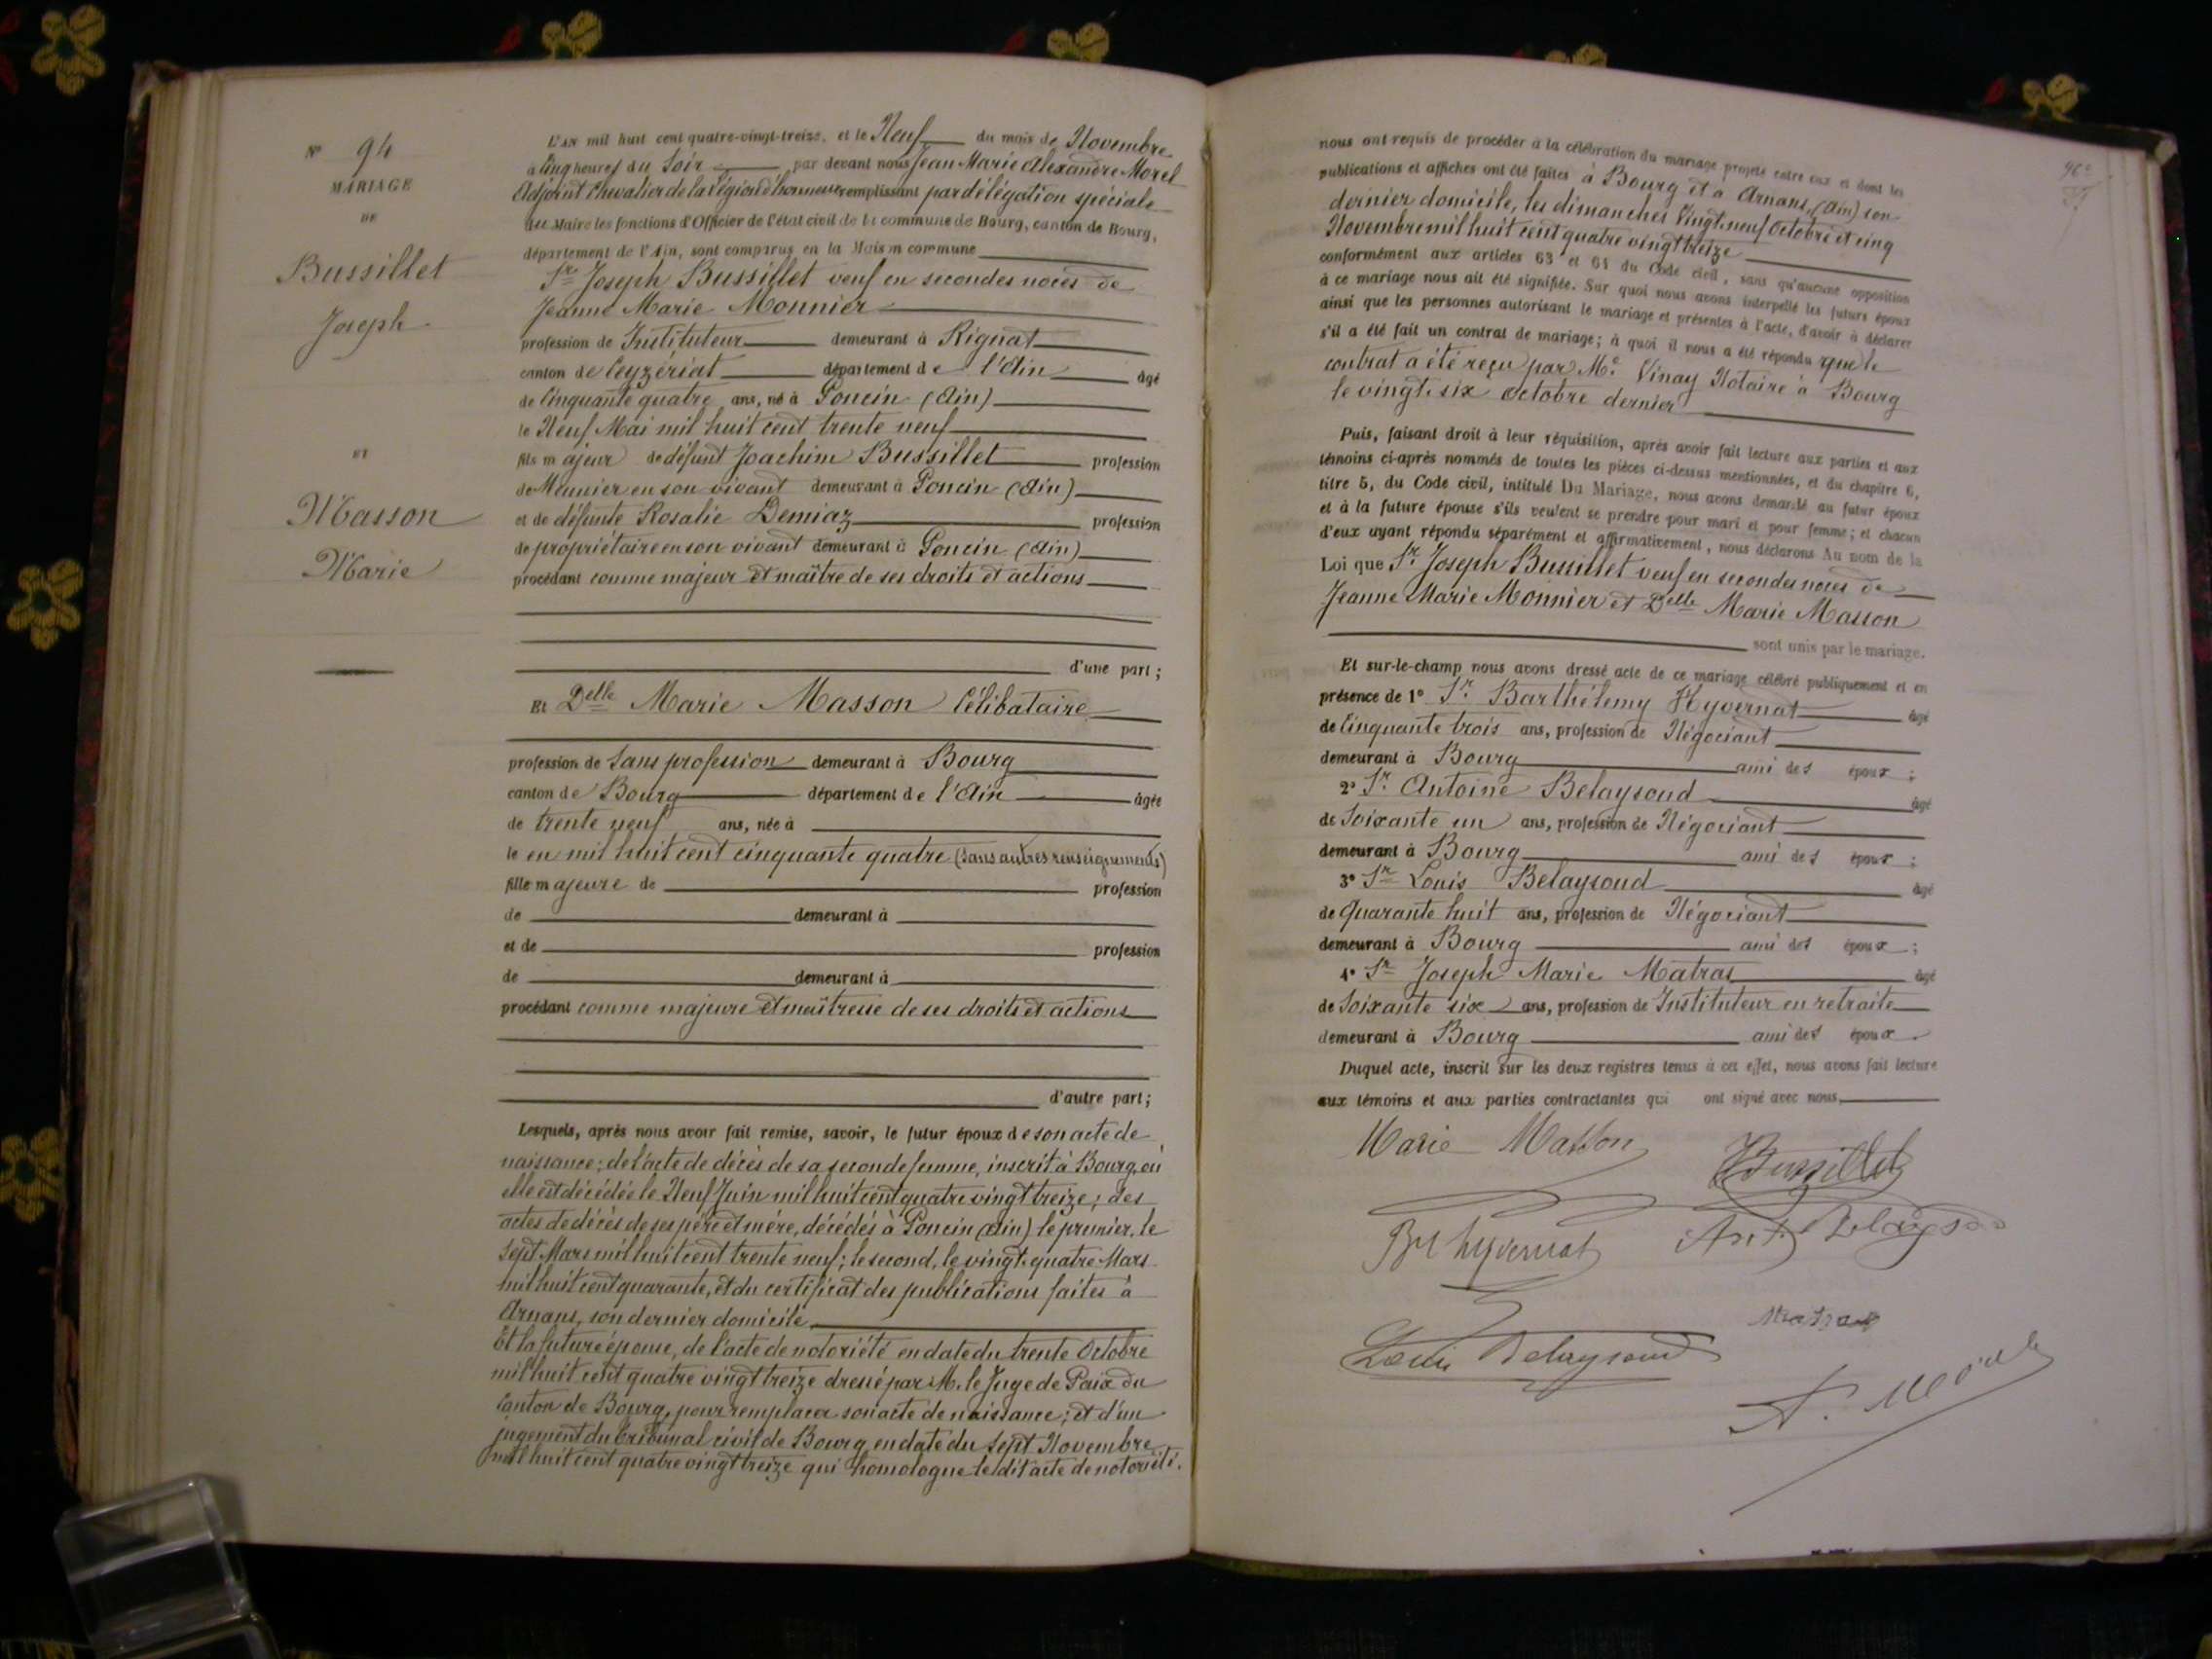 N° 94
MARIAGE
DE
Bussillet
Joseph
ET
Masson
Marie
L'AN mil huit cent quatre-vingt-treize, et le Neuf du mois de Novembre
à Cinq heures du Soir par devant nous Jean Marie Alexandre Morel
Adjoint Chevalier de la Légion d'honneur remplissant par délégation spéciale
du Maire les fonctions d'Officier de l'état civil de la commune de Bourg, canton de Bourg,
département de l'Ain, sont comparus en la Maison commune
Sr Joseph Bussillet veuf en secondes noces de
Jeanne Marie Monnier
profession de Instituteur demeurant à Rignat
canton de Ceyzériat département de l'Ain âgé
de Cinquante quatre ans, né à Poncin (Ain)
le Neuf Mai mil huit cent trente neuf
fils majeur de défunt Joachim Bussillet profession
de Meunier en son vivant demeurant à Poncin (Ain)
et de défunte Rosalie Demiaz profession
de propriétaire en son vivant demeurant à Poncin (Ain)
procédant comme majeur et maître de ses droits et actions
d'une part ;
Et Delle Marie Masson Célibataire
profession de Sans profession demeurant à Bourg
canton de Bourg département de l'Ain âgée
de trente neuf ans, née à
le en mil huit cent cinquante quatre (sans autres renseignements)
fille majeure de profession
de demeurant à
et de profession
de demeurant à
procédant comme majeure et maîtresse de ses droits et actions
d'autre part ;
Lesquels, après nous avoir fait remise, savoir, le futur époux de son acte de
naissance ; de l'acte de décès de sa seconde femme, inscrit à Bourg, où
elle est décédée le Neuf Juin mil huit cent quatre vingt treize ; des
actes de décès de ses père et mère, décédés à Poncin (Ain) le premier, le
sept Mars mil huit cent trente neuf ; le second, le vingt quatre Mars
mil huit cent quarante, et du certificat des publications faites à
Arnans, son dernier domicile
Et la future épouse, de l'acte de notoriété en date du trente Octobre
mil huit cent quatre vingt treize dressé par M. le Juge de Paix du
Canton de Bourg, pour remplacer son acte de naissance ; et d'un
jugement du tribunal civil de Bourg en date du sept Novembre
mil huit cent quatre vingt treize qui homologue le dit acte de notoriété.
nous ont requis de procéder à la célébration du mariage projeté entre eux et dont les
publications et affiches ont été faites à Bourg et à Arnans, (Ain) son
dernier domicile, les dimanches Vingt-neuf Octobre et cinq
Novembre mil huit cent quatre vingt treize
conformément aux articles 63 et 64 du Code civil, sans qu'aucune opposition
à ce mariage nous ait été signifiée. Sur quoi nous avons interpellé les futurs époux
ainsi que les personnes autorisant le mariage et présentes à l'acte, d'avoir à déclarer
s'il a été fait un contrat de mariage ; à quoi il nous a été répondu que le
contrat a été reçu par Me. Vinay Notaire à Bourg
le vingt-six octobre dernier
Puis, faisant droit à leur réquisition, après avoir fait lecture aux parties et aux
témoins ci-après nommés de toutes les pièces ci-dessus mentionnées, et du chapitre 6,
titre 5, du Code civil, intitulé Du Mariage, nous avons demandé au futur époux
et à la future épouse s'ils veulent se prendre pour mari et pour femme ; et chacun
d'eux ayant répondu séparément et affirmativement, nous déclarons Au nom de la
Loi que Sr. Joseph Bussillet veuf en secondes noces de
Jeanne Marie Monnier et Delle Marie Masson
sont unis par le mariage.
Et sur-le-champ nous avons dressé acte de ce mariage célébré publiquement et en
présence de 1° Sr. Barthélemy Hyvernat âgé
de Cinquante trois ans, profession de Négociant
demeurant à Bourg ami des époux ;
2° Sr. Antoine Belaysoud âgé
de Soixante un ans, profession de Négociant
demeurant à Bourg ami des époux ;
3° Sr Louis Belaysoud âgé
de Quarante huit ans, profession de Négociant
demeurant à Bourg ami des époux ;
4° Sr Joseph Marie Matras âgé
de Soixante six ans, profession de Instituteur en retraite
demeurant à Bourg ami des époux.
Duquel acte, inscrit sur les deux registres tenus à cet effet, nous avons fait lecture
aux témoins et aux parties contractantes qui ont signé avec nous.
Marie Masson
Bussillet
By hyvernat
Ant. Belaysoud
Matras
Louis Belaysoud
A. Morel